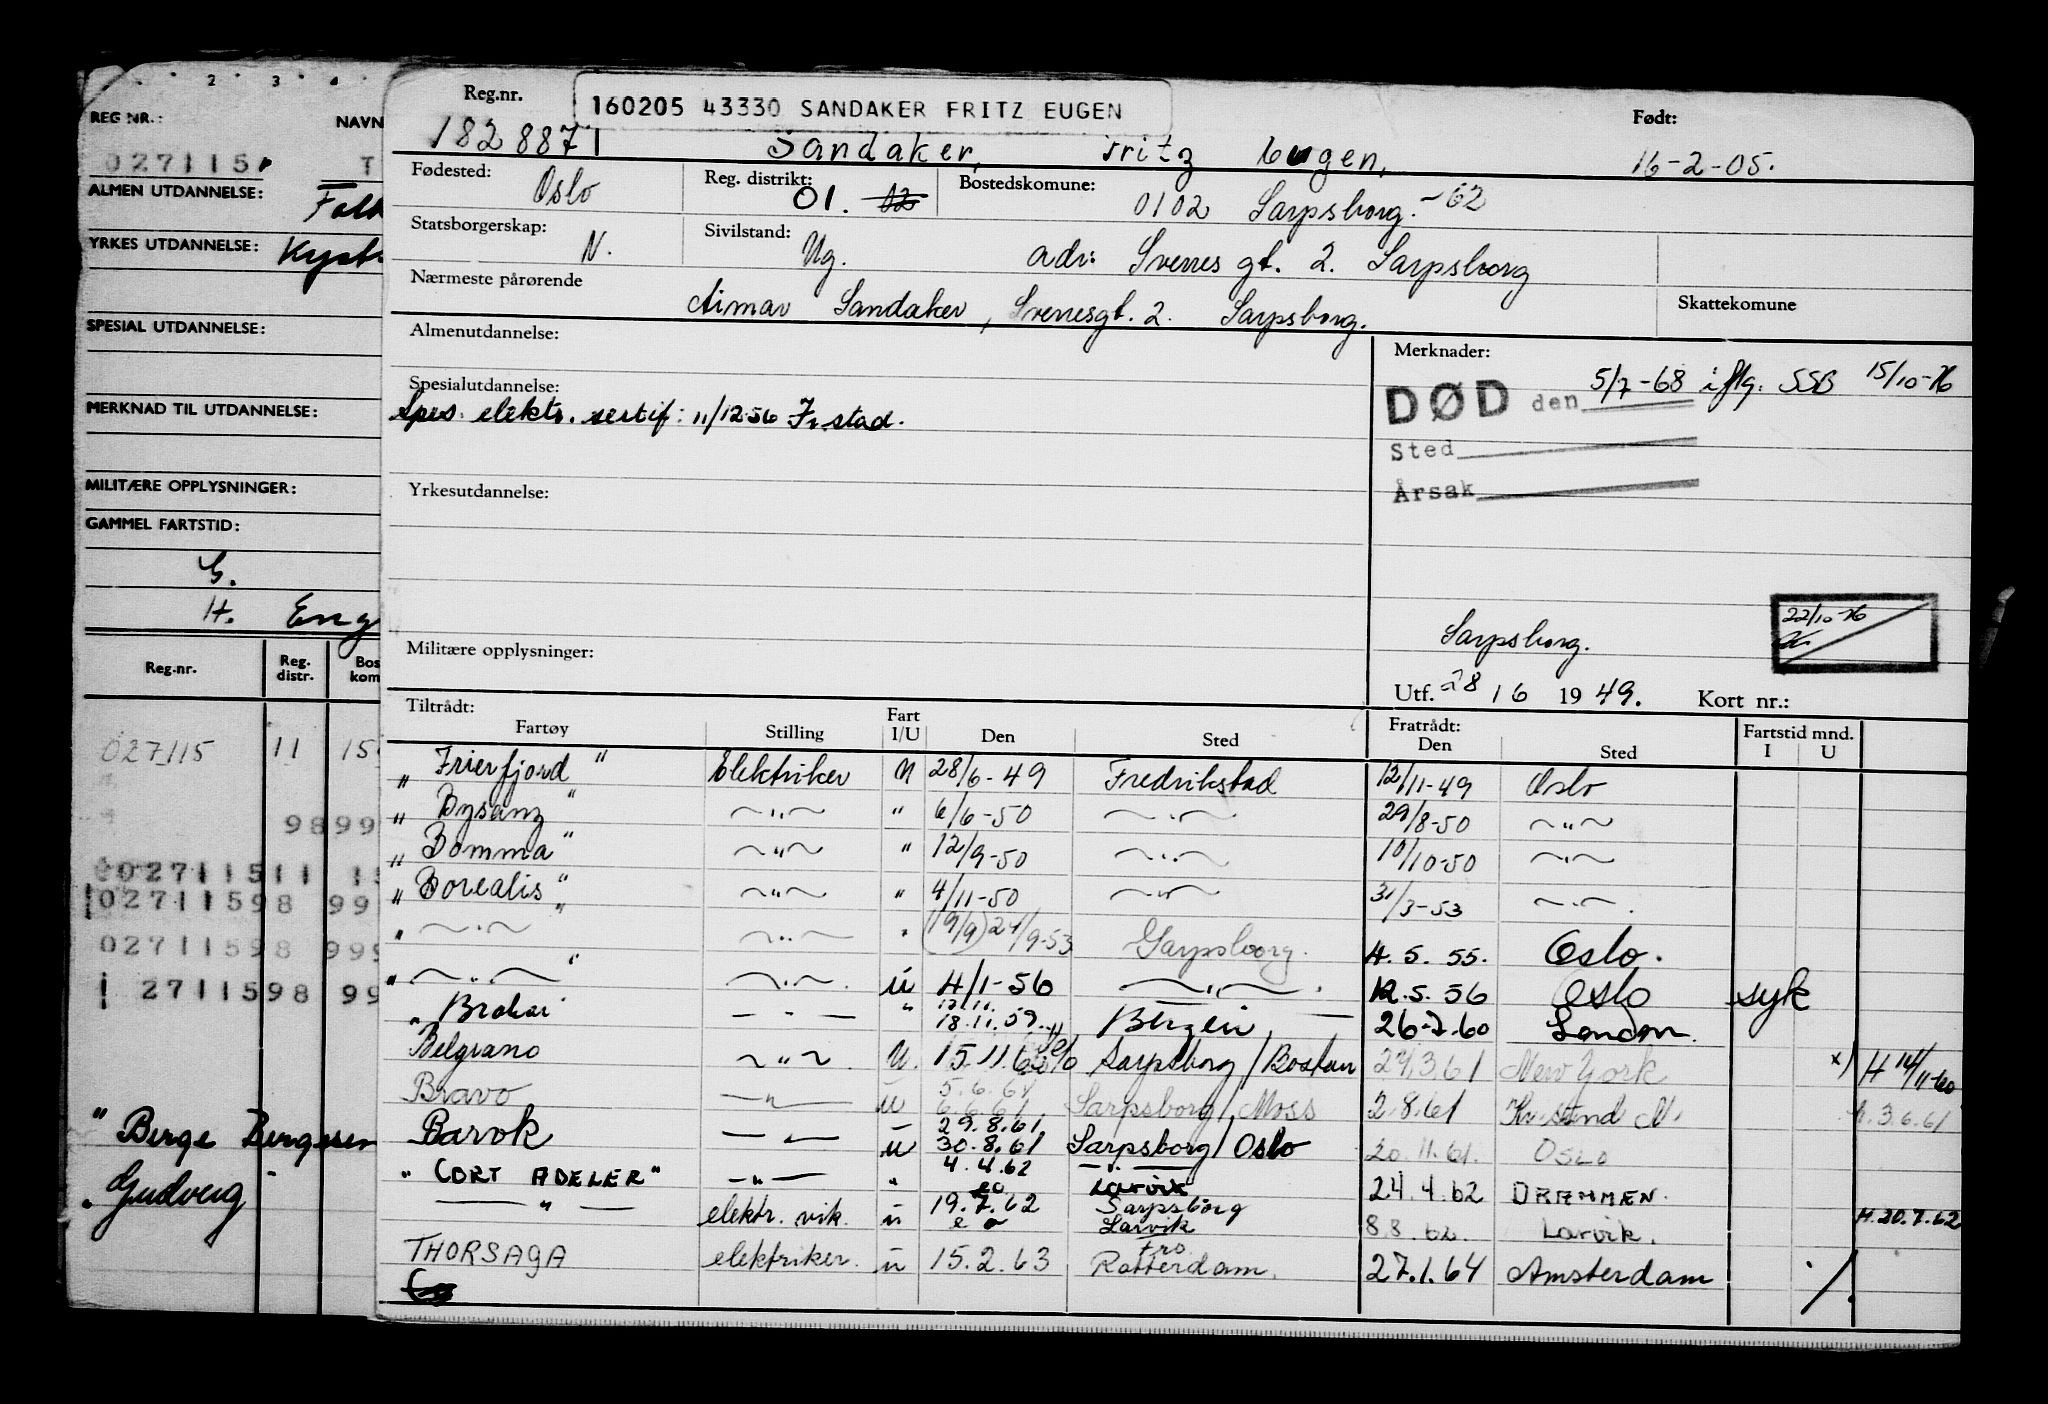 2 3 4
REG NR.: NAVN
0271151 T
ALMEN UTDANNELSE: Folk
YRKES UTDANNELSE: Kyst
SPESIAL UTDANNELSE:
MERKNAD TIL UTDANNELSE:
MILITÆRE OPPLYSNINGER:
GAMMEL FARTSTID:
S.
H. Eng
Reg.nr. Reg. distr. Bos kom
027115 11 15
9899
02711511 15
02711598 99
02711598 999
2711598 99
" Berge Bergesen
" Gudveig "
Reg.nr. 160205 43330 SANDAKER FRITZ EUGEN Født:
1828871 Sandaker, Fritz Eugen, 16-2-05.
Fødested: Oslo Reg. distrikt: 01. 02 Bostedskomune: 0102 Sarpsborg. -62
Statsborgerskap: N. Sivilstand: Ug. adr: Sverres gt. 2. Sarpsborg
Nærmeste pårørende Aimar Sandaker, Sverresgt. 2. Sarpsborg. Skattekomune
Almenutdannelse: Merknader:
DØD den 5/7-68 iflg. SSB 15/10-76
Spesialutdannelse:
Spes. elektr. sertif: 11/12 56 Fr.stad.
Sted
Årsak
Yrkesutdannelse:
22/10-76
Sarpsborg.
Militære opplysninger:
Utf. 28/6 1949. Kort nr.:
Tiltrådt: Fart Fratrådt: Fartstid mnd.
Fartøy Stilling I/U Den Sted Den Sted I U
" Frierfjord " Elektriker U 28/6-49 Fredrikstad 12/11-49 Oslo
" Bysanz " —"— " 6/6-50 —"— 29/8-50 —"—
" Bomma " —"— " 12/9-50 —"— 10/10-50 —"—
" Borealis " —"— " 4/11-50 —"— 31/3-53 —"—.
" —"— " —"— " (19/9) 24/9-53 Sarpsborg. 4. 5. 55. Oslo.
" —"— " —"— u 4/1-56 —"—. 12.5.56 Oslo syk
" Brakar —"— " 18.11.59. Bergen 26-7.60 London.
Belgrano —"— U. 15.11.60 Sarpsborg / Boston 24.3.61 New York x) H 14/11-60
Bravo —"— u 5.6.61 6.6.61 Sarpsborg / Moss 2.8.61 Kr. sund N. h. 3.6.61
Barok —"— u 29.8.61. 30.8.61 Sarpsborg / Oslo 20.11.61. OSLO
" CORT ADELER " —"— " 4.4.62 —"— Larvik 24.4.62 DRAMMEN.
—"— elektr. vik. u 19.7.62 Sarpsborg Larvik 8.8.62. Larvik. H. 20.7.62
THORSAGA elektriker. u 15.2.63 fro Rotterdam. 27.1.64 Amsterdam ./.